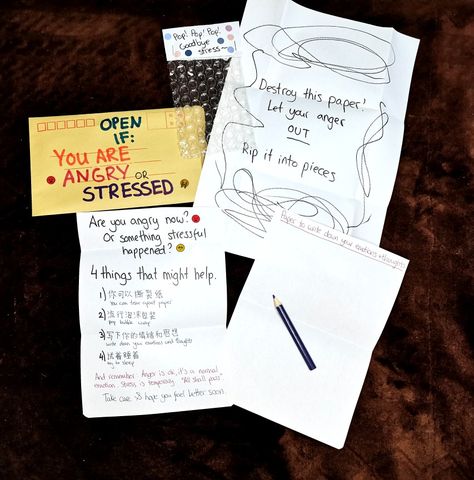 Pop! Pop! Pop!
Goodbye
stress~
OPEN
IF:
YOU ARE
ANGRY OR
STRESSED
Destroy this paper!
Let your anger
OUT
Rip it into pieces
Are you angry now?
Or something stressful
happened?
4 things that might help.
1) 你可以撕裂纸
You can tear apart paper
2) 流行泡沫包装
Pop bubble wrap
3) 写下你的情绪和思想
write down your emotions and thoughts
4) 试着睡着
try to sleep
And remember: Anger is ok, it's a normal
emotion. Stress is temporary. "All shall pass".
Take care <3 hope you feel better soon.
Paper to write down your emotions+thoughts